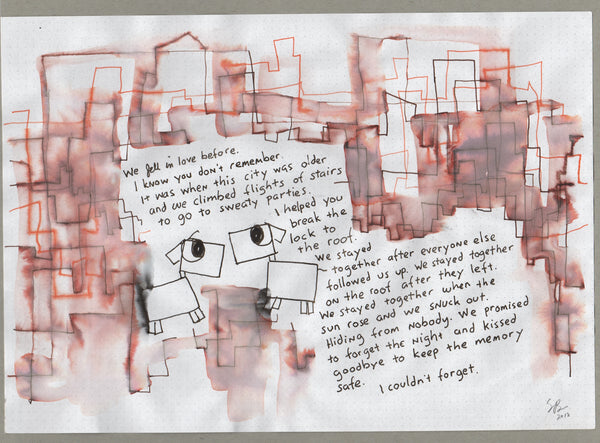 We fell in love before.
I know you don't remember.
It was when this city was older
and we climbed flights of stairs
to go to sweaty parties.
I helped you
break the
lock to
the roof.
We stayed
together after everyone else
followed us up. We stayed together
on the roof after they left.
We stayed together when the
sun rose and we snuck out.
Hiding from nobody. We promised
to forget the night and kissed
goodbye to keep the memory
safe.
I couldn't forget.
2012